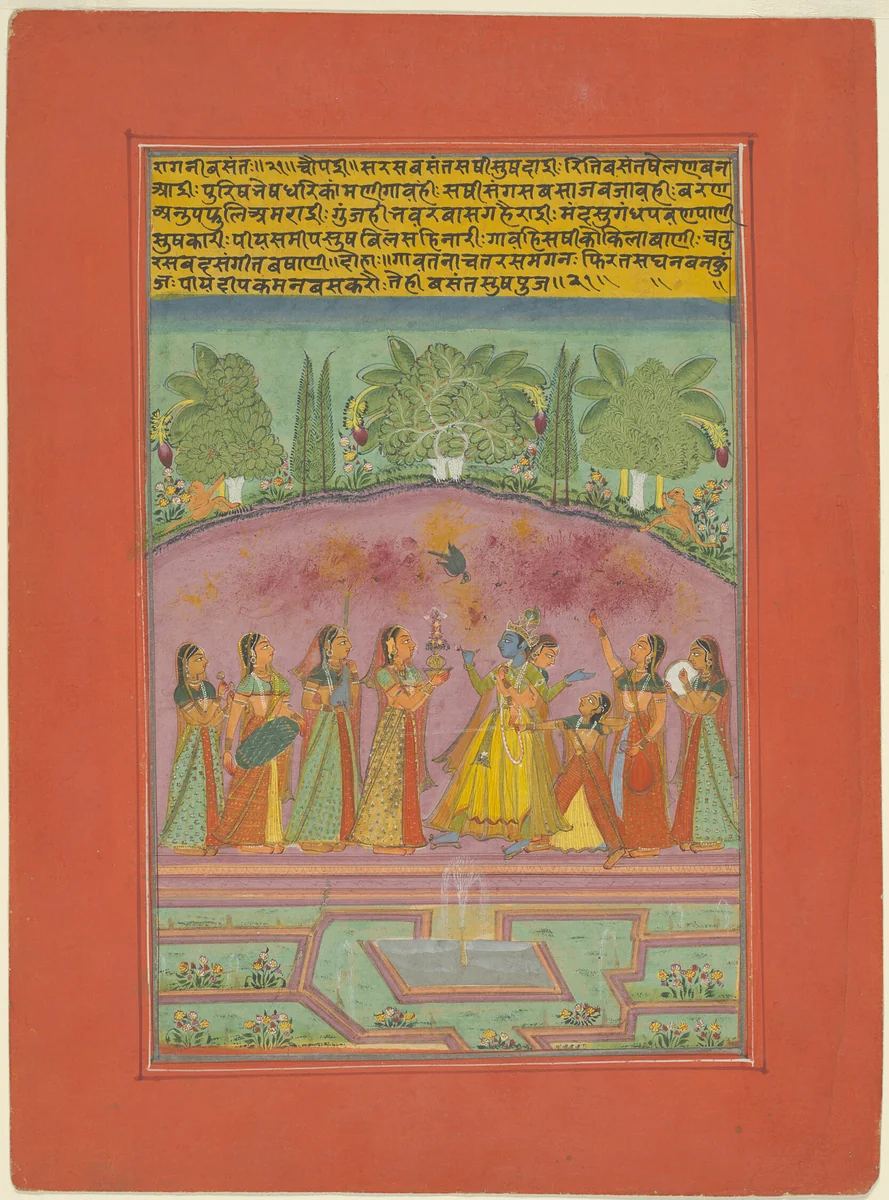 रागनी बसंतः॥२१॥ चौपई॥ सरस बसंत सषी सुषदाई: रिति बसंत षेलण बन
आई: पुरिष भेष धरि कांमणी गावही: सषी संग सब साज बजावही: बरण
अनुप फुलि अमराई: गुंजही भवर बास गहैराई: मंद सुगंध पवण पाणी
सुषकारी: पीय समीप सुष बिलसहि नारी: गावहि सषी कोकिला बाणी: चतु
र सबद संगीत बषाणी॥ दोहा:॥ गावत नाचत रस मगन: फिरत सघन बन कुं
ज: पीय दीपक मन बस करौ: तेही बसंत सुष पुज॥२१॥